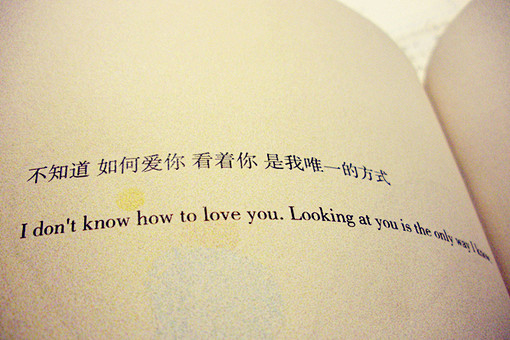 不知道 如何爱你 看着你 是我唯一的方式
I don't know how to love you. Looking at you is the only way I know